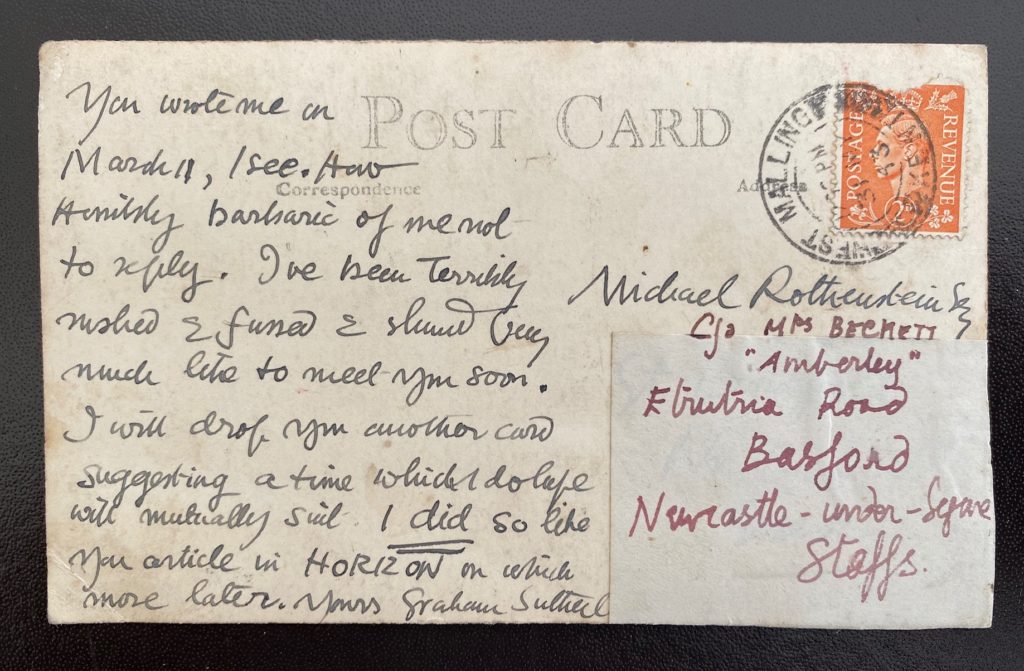 POST CARD
Correspondence
Address
You wrote me on
March 11, I see. How
Horribly barbaric of me not
to reply. I've been Terribly
rushed & fussed & should very
much like to meet you soon.
I will drop you another card
suggesting a time which I do hope
will mutually suit. I did so like
you article in HORIZON on which
more later. Yours Graham Sutherl
WEST MALLING
KENT
PM
POSTAGE
REVENUE
Michael Rothenstein Esq
C/o Mrs BECKETT
"Amberley"
Etrutria Road
Basford
Newcastle-under-
Staffs.